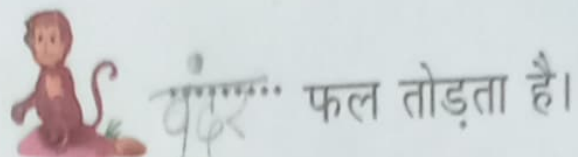 बंदर फल तोड़ता है।